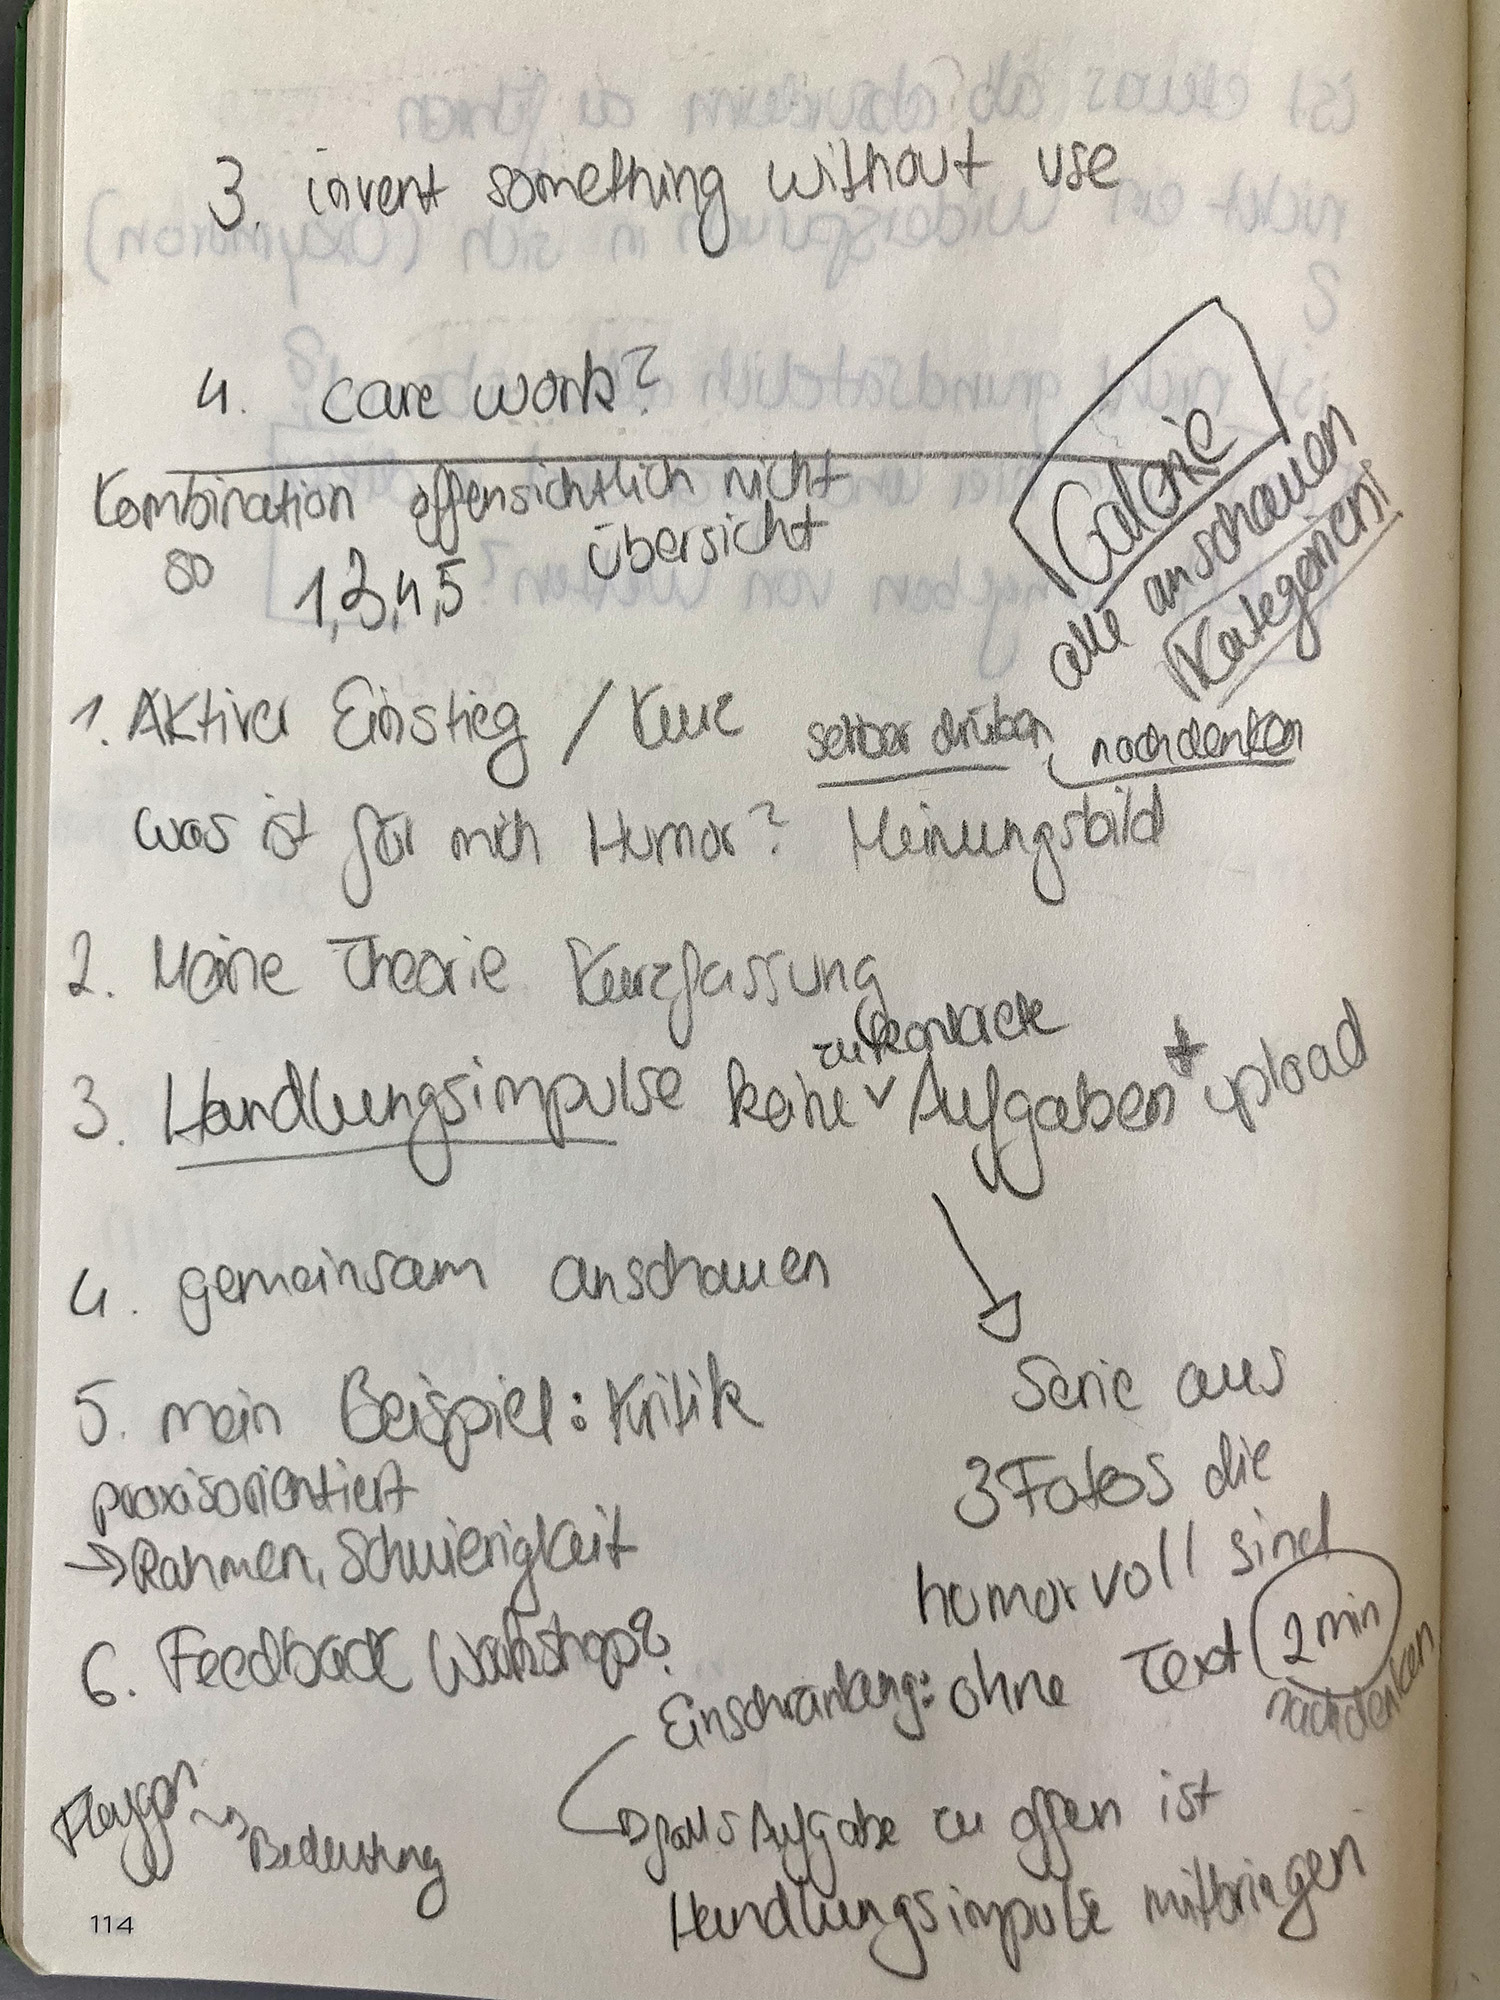 3. invent something without use
4. care work?
Galerie
alle anschauen
Kategorien!
Kombination offensichtlich nicht
so 1,3,4,5 übersicht
1. Aktiver Einstieg / Kurz selber drüben, nachdenken
was ist für mich Humor? Meinungsbild
2. Meine Theorie Kurzfassung
zu konkrete
3. Handlungsimpulse keine Aufgaben + upload
4. gemeinsam anschauen
5. mein Beispiel: Kritik
praxisorientiert
→ Rahmen, Schwierigkeit
6. Feedback Workshop?
Serie aus
3 Fotos die
humorvoll sind
Einschränkung: ohne Text 2 min
nachdenken
falls Aufgabe zu offen ist
Handlungsimpulse mitbringen
→ Bedeutung
114